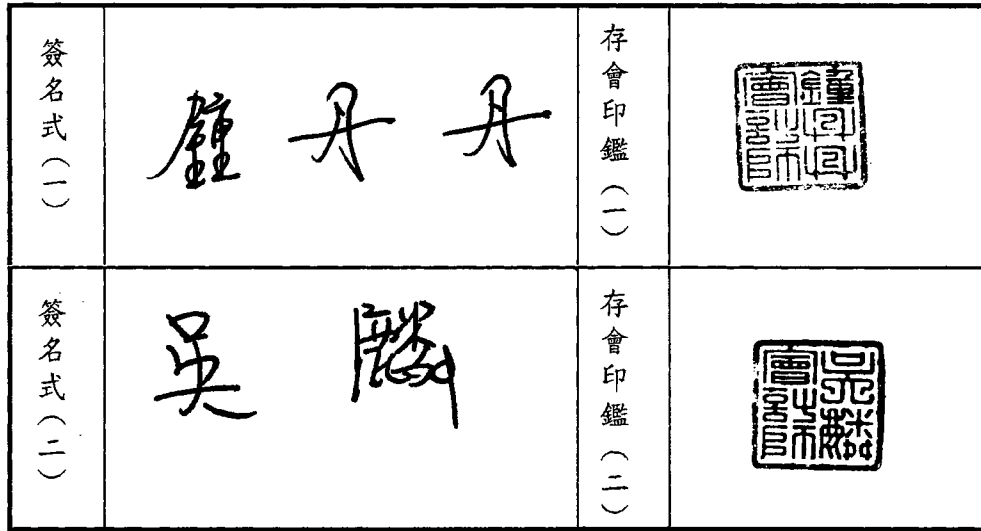 簽名式（一）
鍾丹丹
存會印鑑（一）
鍾丹丹會計師
簽名式（二）
吳麟
存會印鑑（二）
吳麟會計師